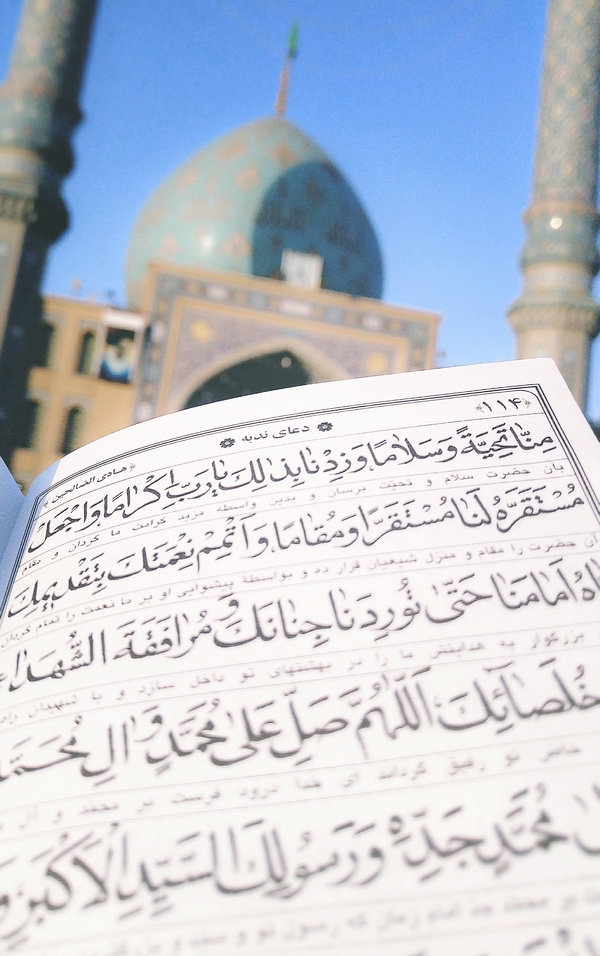 ﴿۱۱۴﴾
دعای ندبه
هادی الصالحین
مِنَّا تَحِيَّةً وَسَلَامًا وَزِدْنَا بِذٰلِكَ يَا رَبِّ اِكْرَامًا وَاجْعَلْ
بان حضرت سلام و تحیت برسان و بدین واسطه مزید کرامت ما گردان و مقام
مُسْتَقَرَّهُ لَنَا مُسْتَقَرًّا وَمُقَامًا وَاَتْمِمْ نِعْمَتَكَ بِتَقْدِيمِكَ
آن حضرت را مقام و منزل شیعیان قرار ده و بواسطهٔ پیشوایی او بر ما نعمتت را تمام گردان
اَمَامَنَا حَتّٰى تُورِدَنَا جِنَانَكَ وَمُرَافَقَةَ الشُّهَدَاءِ
بزرگوار به هدایتش ما را در بهشتهای تو داخل سازد و با شهیدان راه
خُلَصَائِكَ اَللّٰهُمَّ صَلِّ عَلٰى مُحَمَّدٍ وَاٰلِ مُحَمَّدٍ
خاص تو رفیق گرداند ای خدا درود فرست بر محمد و آل
مُحَمَّدٍ جَدِّهِ وَرَسُولِكَ السَّيِّدِ الْاَكْبَرِ
بر محمد جد امام زمان که رسول تو و سید و بزرگترین